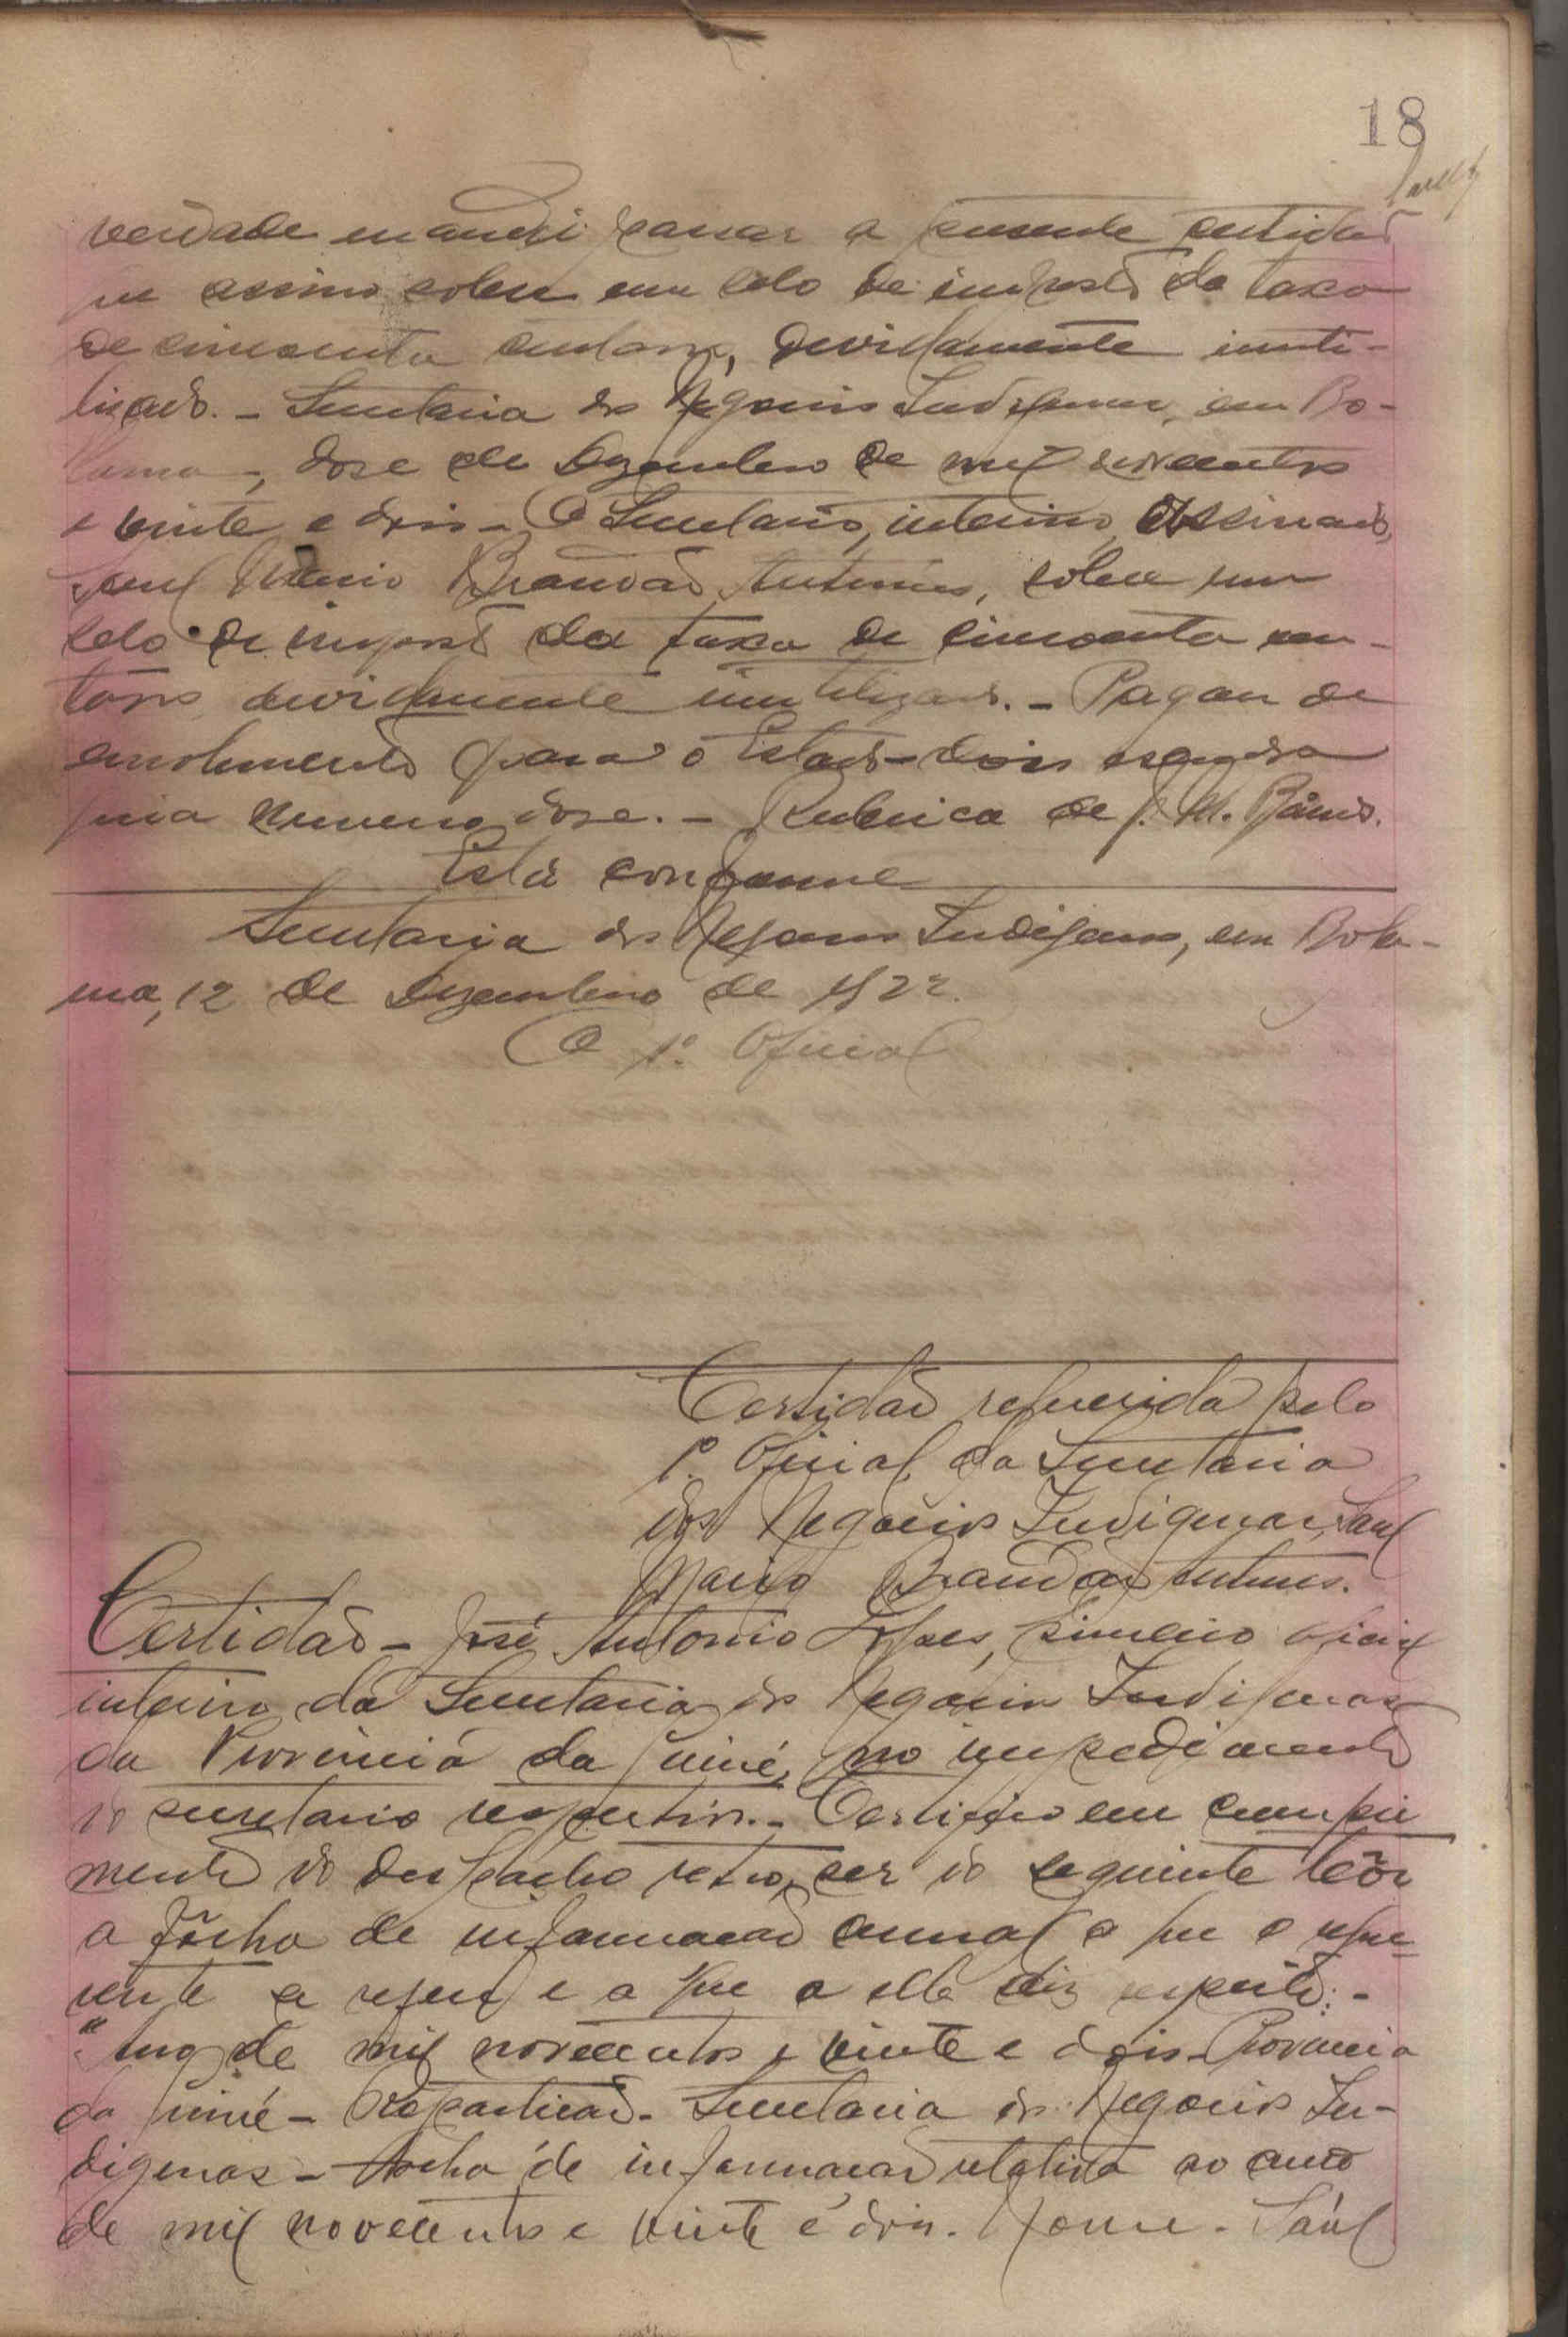 18
verdade mandei passar a presente certidão
que assino sobre um selo de imposto da taxa
de cincoenta centavos, devidamente inuti-
lizado. - Secretaria dos Negocios Indigenas, em Bo-
lama, doze de Dezembro de mil novecentos
e vinte e dois - O Secretario, interino, Assinado,
Saul Mario Brandão Antunes, sobre um
selo de imposto da taxa de cincoenta cen-
tavos devidamente inutilizado. - Pagou de
emolumentos para o Estado - dois escudos
guia numero doze. - Rubrica de J. M.
Está conforme
Secretaria dos Negocios Indigenas, em Bola-
ma, 12 de Dezembro de 1922.
O 1º. Oficial
Certidão requerida pelo
1º. Oficial da Secretaria
dos Negocios Indigenas, Saul
Mario Brandão Antunes.
Certidão - José Antonio Lopes, primeiro oficial
interino da Secretaria dos Negocios Indigenas
da Provincia da Guiné, no impedimento
do secretario respectivo. - Certifico em cumpri
mento do despacho retro, ser do seguinte teôr
a fôcha de informação anual a que o reque-
rente se refere e a que a elle diz respeito: -
"Ano de mil novecentos e vinte e dois - Provincia
da Guiné - Repartição - Secretaria dos Negocios In-
digenas - Focha de informação relativa ao ano
de mil novecentos e vinte e dois. Nome - Saúl